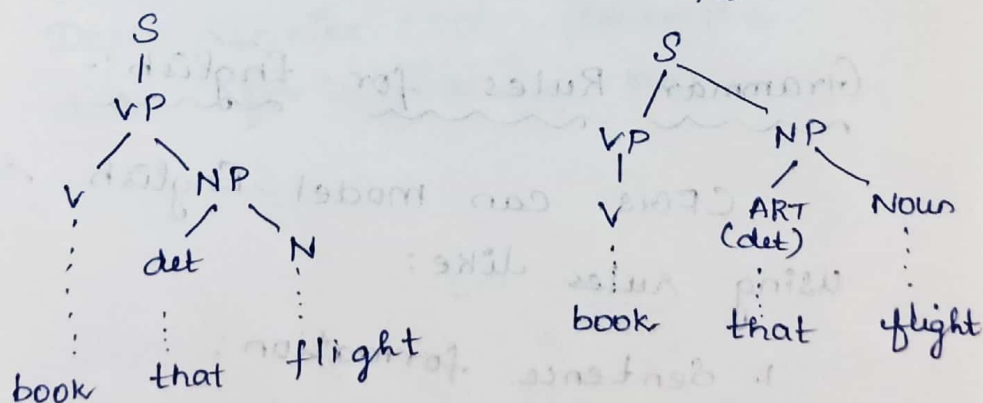 S
VP
V NP
det N
book that flight
S
VP NP
V ART Noun
(det)
book that flight